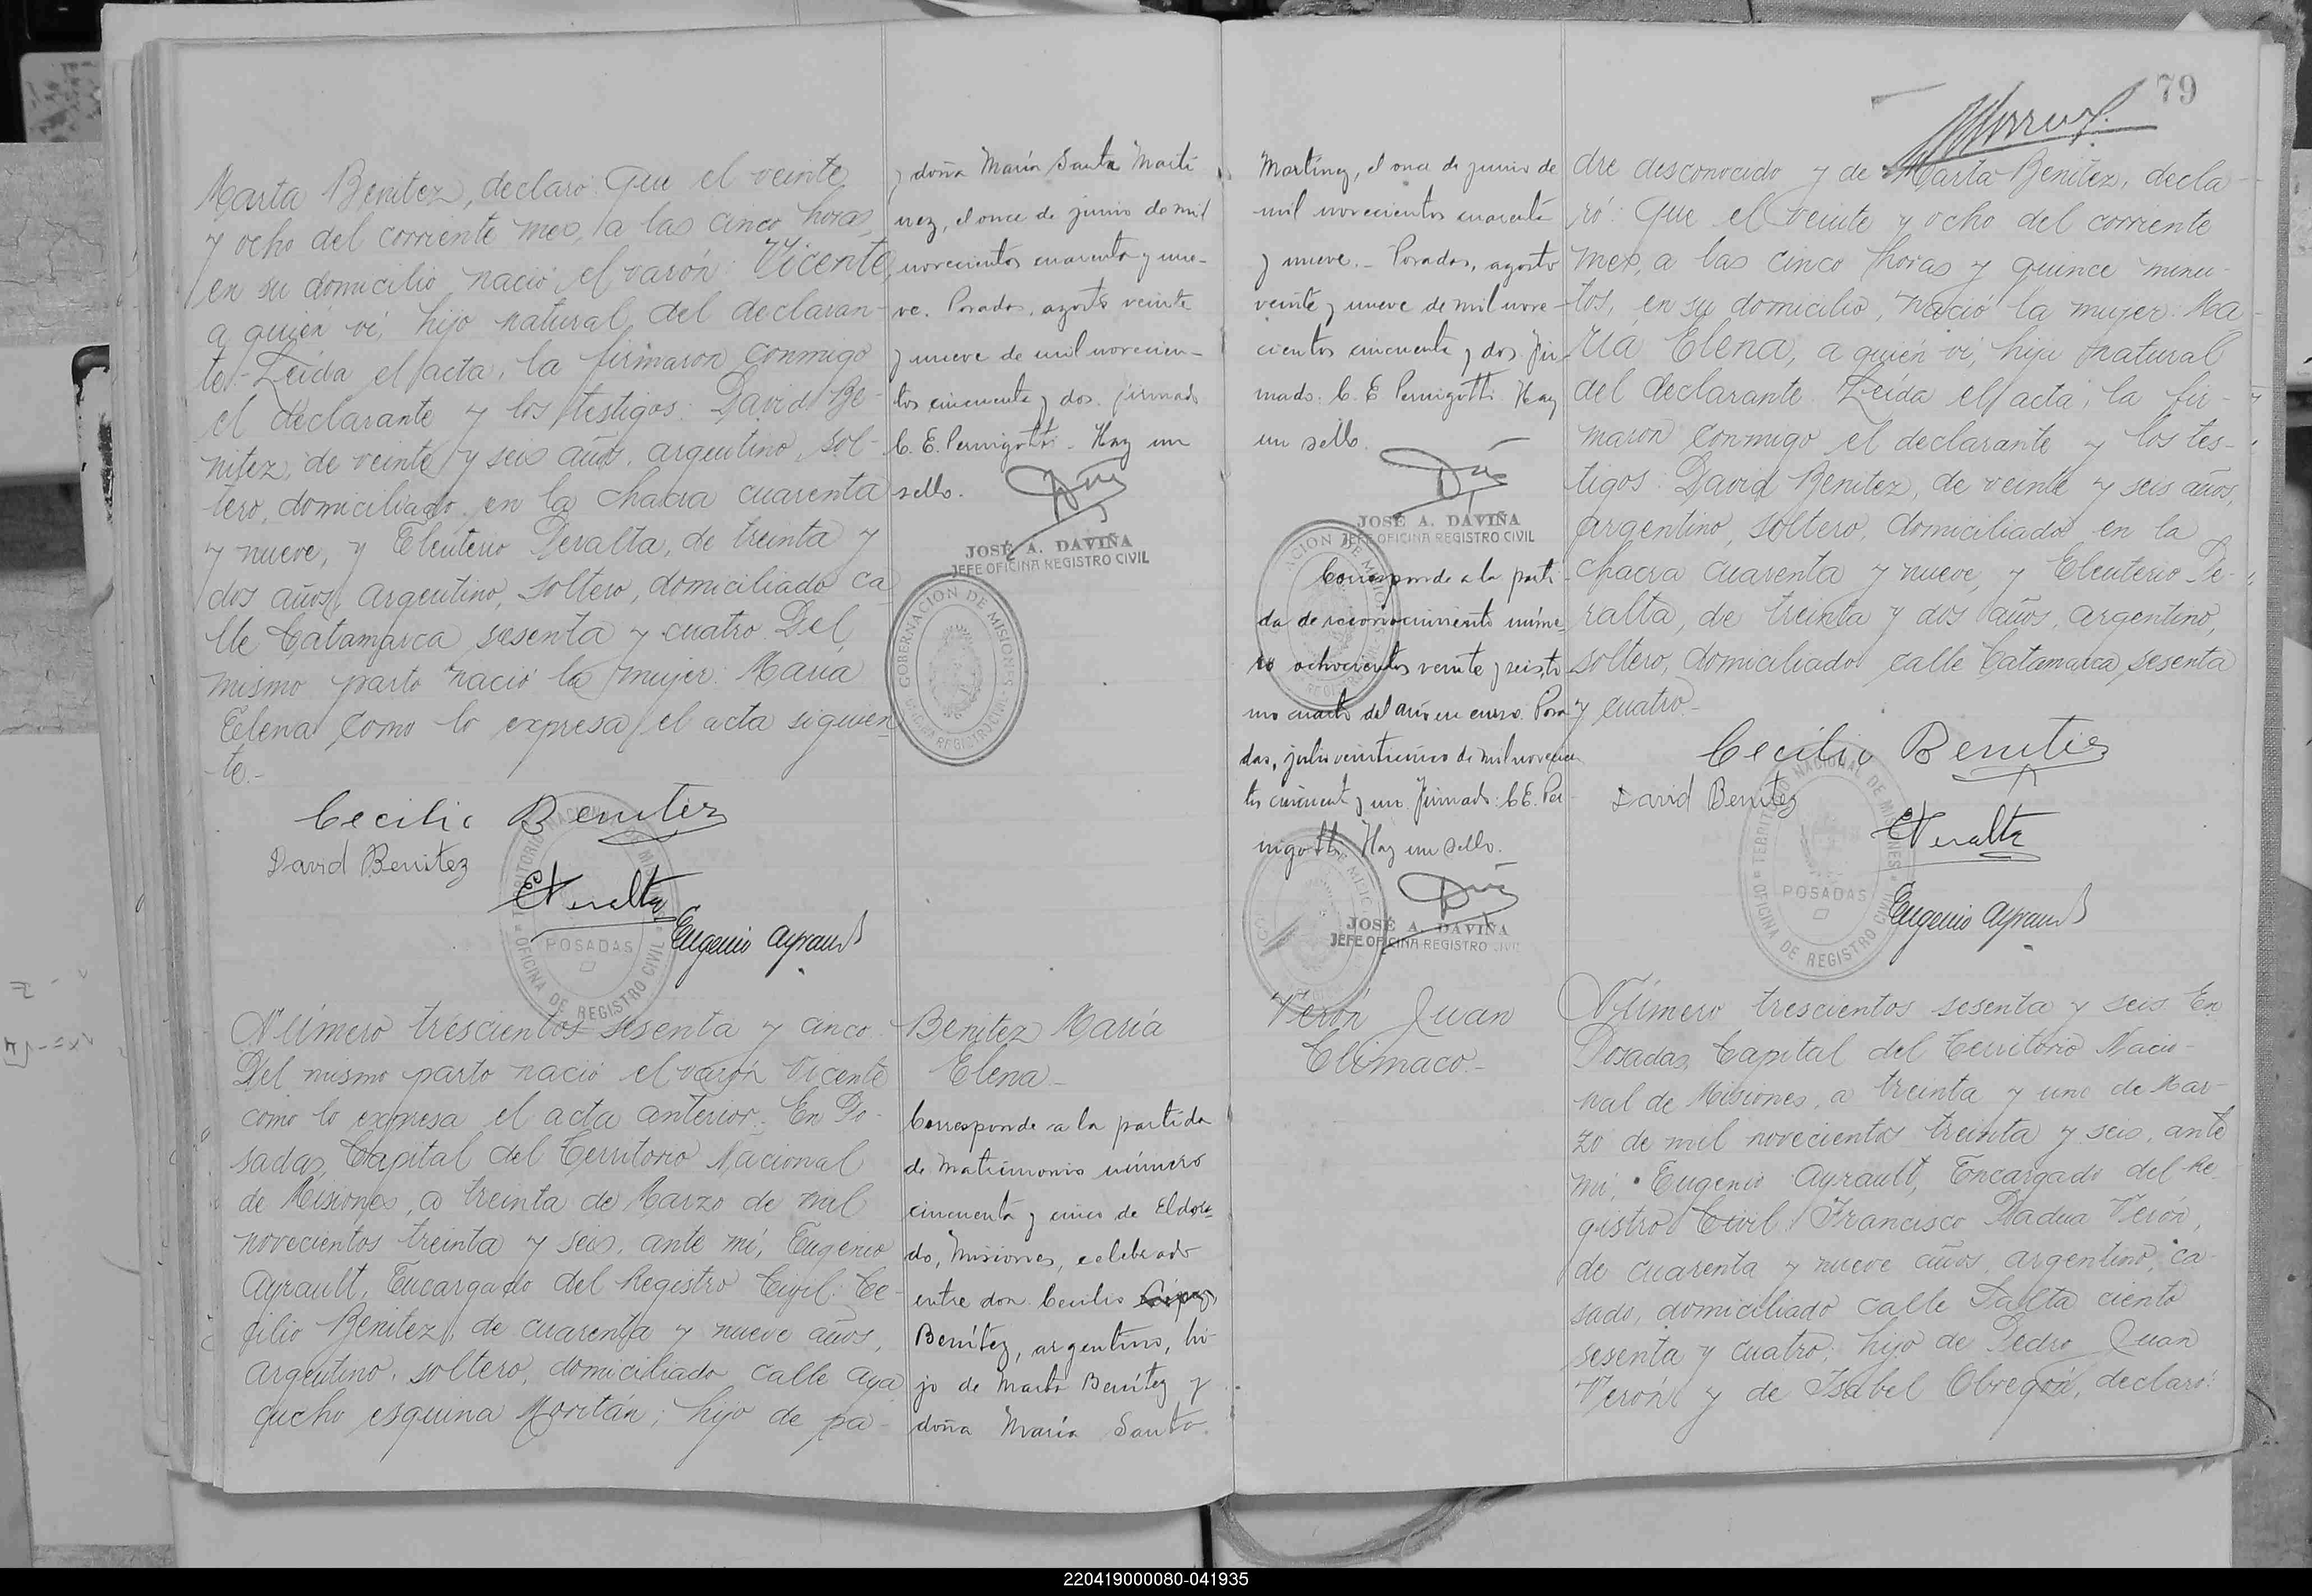 Marta Benitez, declaró: Que el veinte
y ocho del corriente mes, a las cinco horas,
en su domicilio nació el varón: Vicente,
a quién ví, hijo natural del declaran-
te.- Leída el acta, la firmaron conmigo
el declarante y los testigos: David Be-
nitez, de veinte y seis años, argentino, sol-
tero, domiciliado en la chacra cuarenta
y nueve, y Eleuterio Peralta, de treinta y
dos años, argentino, soltero, domiciliado ca-
lle Catamarca sesenta y cuatro. Del
mismo parto nació la mujer: María
Elena como lo expresa el acta siguien-
te.-
Cecilio Benitez
David Benitez
EPeralta
Eugenio Ayrault
TERRITORIO NACIONAL DE MISIONES
POSADAS
OFICINA DE REGISTRO CIVIL
Número trescientos sesenta y cinco.
Del mismo parto nació el varón Vicente
como lo expresa el acta anterior.- En Po-
sadas, Capital del Territorio Nacional
de Misiones, a treinta de Marzo de mil
novecientos treinta y seis, ante mí, Eugenio
Ayrault, Encargado del Registro Civil: Ce-
cilio Benitez, de cuarenta y nueve años,
argentino, soltero, domiciliado calle Aya-
cucho esquina Moritán; hijo de pa-
y doña María Santa Martí
nez, el once de junio de mil
novecientos cuarenta y nue-
ve. Posadas, agosto veinte
y nueve de mil novecien-
tos cincuenta y dos. firmado
C. E. Pernigotti. Hay un
sello.
JOSÉ A. DAVIÑA
JEFE OFICINA REGISTRO CIVIL
GOBERNACION DE MISIONES
OFICINA REGISTRO CIVIL
Benitez María
Elena.-
Corresponde a la partida
de Matrimonio número
cincuenta y cinco de Eldora-
do, Misiones, celebrado
entre don Cecilio
Benítez, argentino, hi-
jo de Marta Benítez y
doña María Santa
79
Martínez, el once de junio de
mil novecientos cuarenta
y nueve.- Posadas, agosto
veinte y nueve de mil nove-
cientos cincuenta y dos. Fir-
mado: C. E. Pernigotti. Hay
un sello.
JOSÉ A. DAVIÑA
JEFE OFICINA REGISTRO CIVIL
Corresponde a la parti-
da de reconocimiento núme-
ro ochocientos veinte y seis, to-
mo cuarto del año en curso. Posa-
das, julio veinticinco de mil novecien
tos cincuenta y uno. Firmado: C.E. Per-
nigotti. Hay un sello.
JOSÉ A. DAVIÑA
JEFE OFICINA REGISTRO CIVIL
Verón Juan
Climaco.-
dre desconocido y de Marta Benitez, decla-
ró: Que el veinte y ocho del corriente
mes, a las cinco horas y quince minu-
tos, en su domicilio, nació la mujer: Ma-
ría Elena, a quién ví, hija natural
del declarante. Leída el acta, la fir-
maron conmigo el declarante y los tes-
tigos: David Benitez, de veinte y seis años,
argentino, soltero, domiciliado en la
chacra cuarenta y nueve, y Eleuterio Pe-
ralta, de treinta y dos años, argentino,
soltero, domiciliado calle Catamarca, sesenta
y cuatro.-
Cecilio Benitez
David Benitez
EPeralta
Eugenio Ayrault
TERRITORIO NACIONAL DE MISIONES
POSADAS
OFICINA DE REGISTRO CIVIL
Número trescientos sesenta y seis. En
Posadas, Capital del Territorio Nacio-
nal de Misiones, a treinta y uno de Mar-
zo de mil novecientos treinta y seis, ante
mí, Eugenio Ayrault, Encargado del Re-
gistro Civil: Francisco Padua Verón,
de cuarenta y nueve años, argentino, ca-
sado, domiciliado calle Salta ciento
sesenta y cuatro; hijo de Pedro Juan
Verón y de Isabel Obregón, declaró:
220419000080-041935